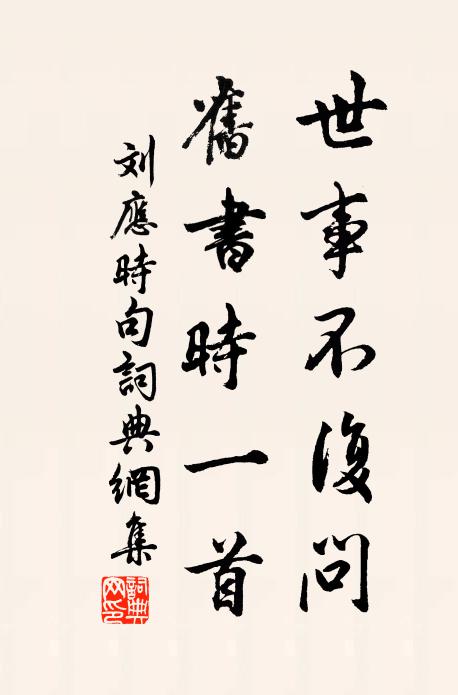 世事不復問
舊書時一首
刘應時句詞典網集
詞典網印